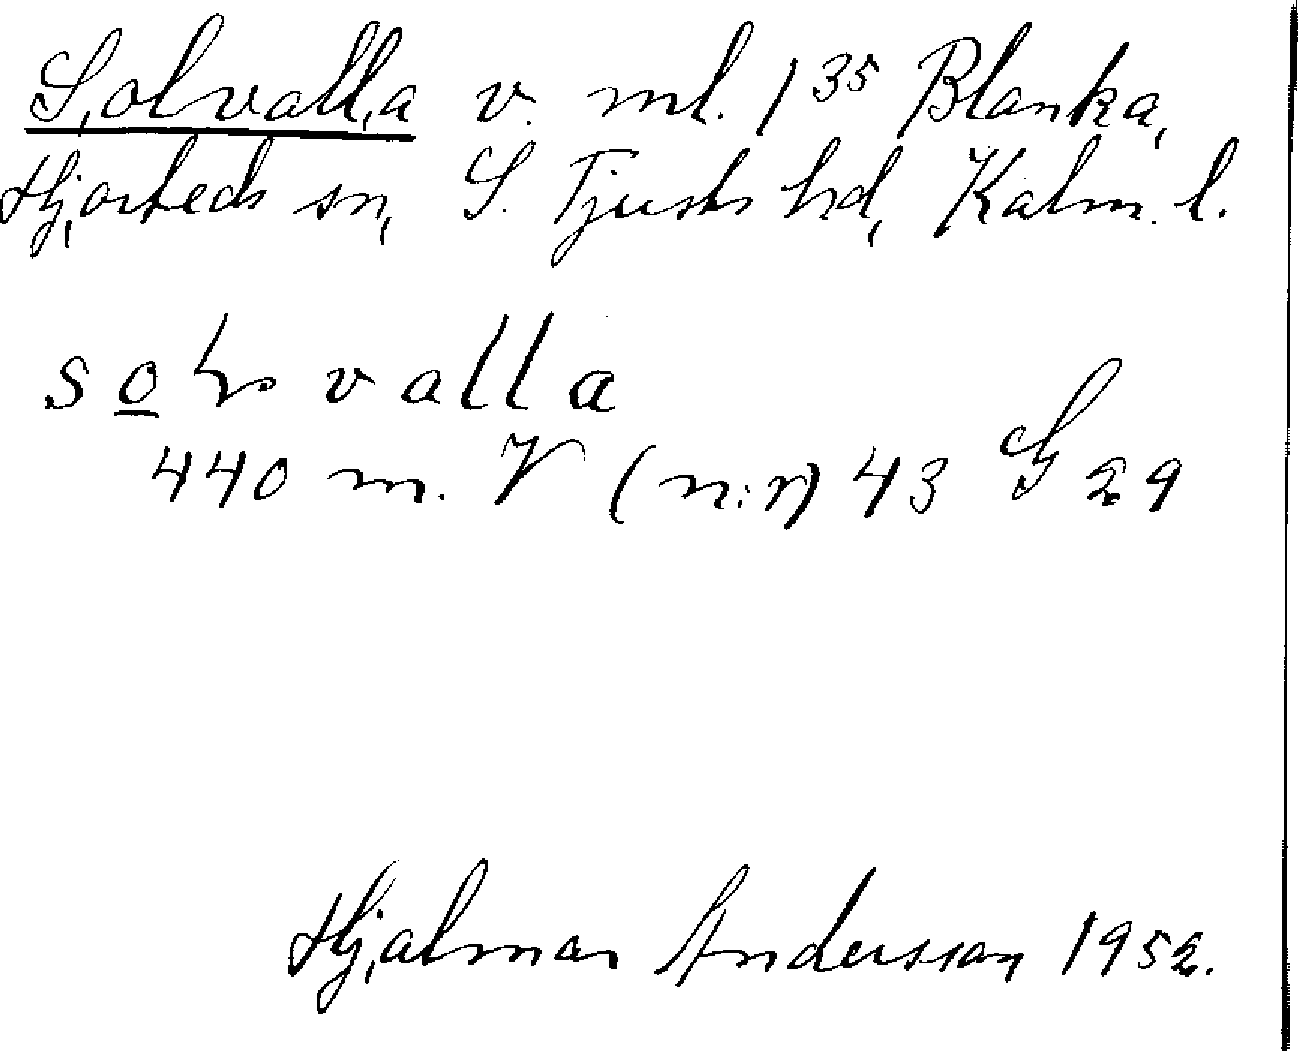 Solvalla v. ml. 1³⁵ Blanka,
Hjorteds sn, S. Tjusts hd, Kalm. l.
valla
440 m. V (n:r) 43 G 29
Hjalmar Andersson 1952.